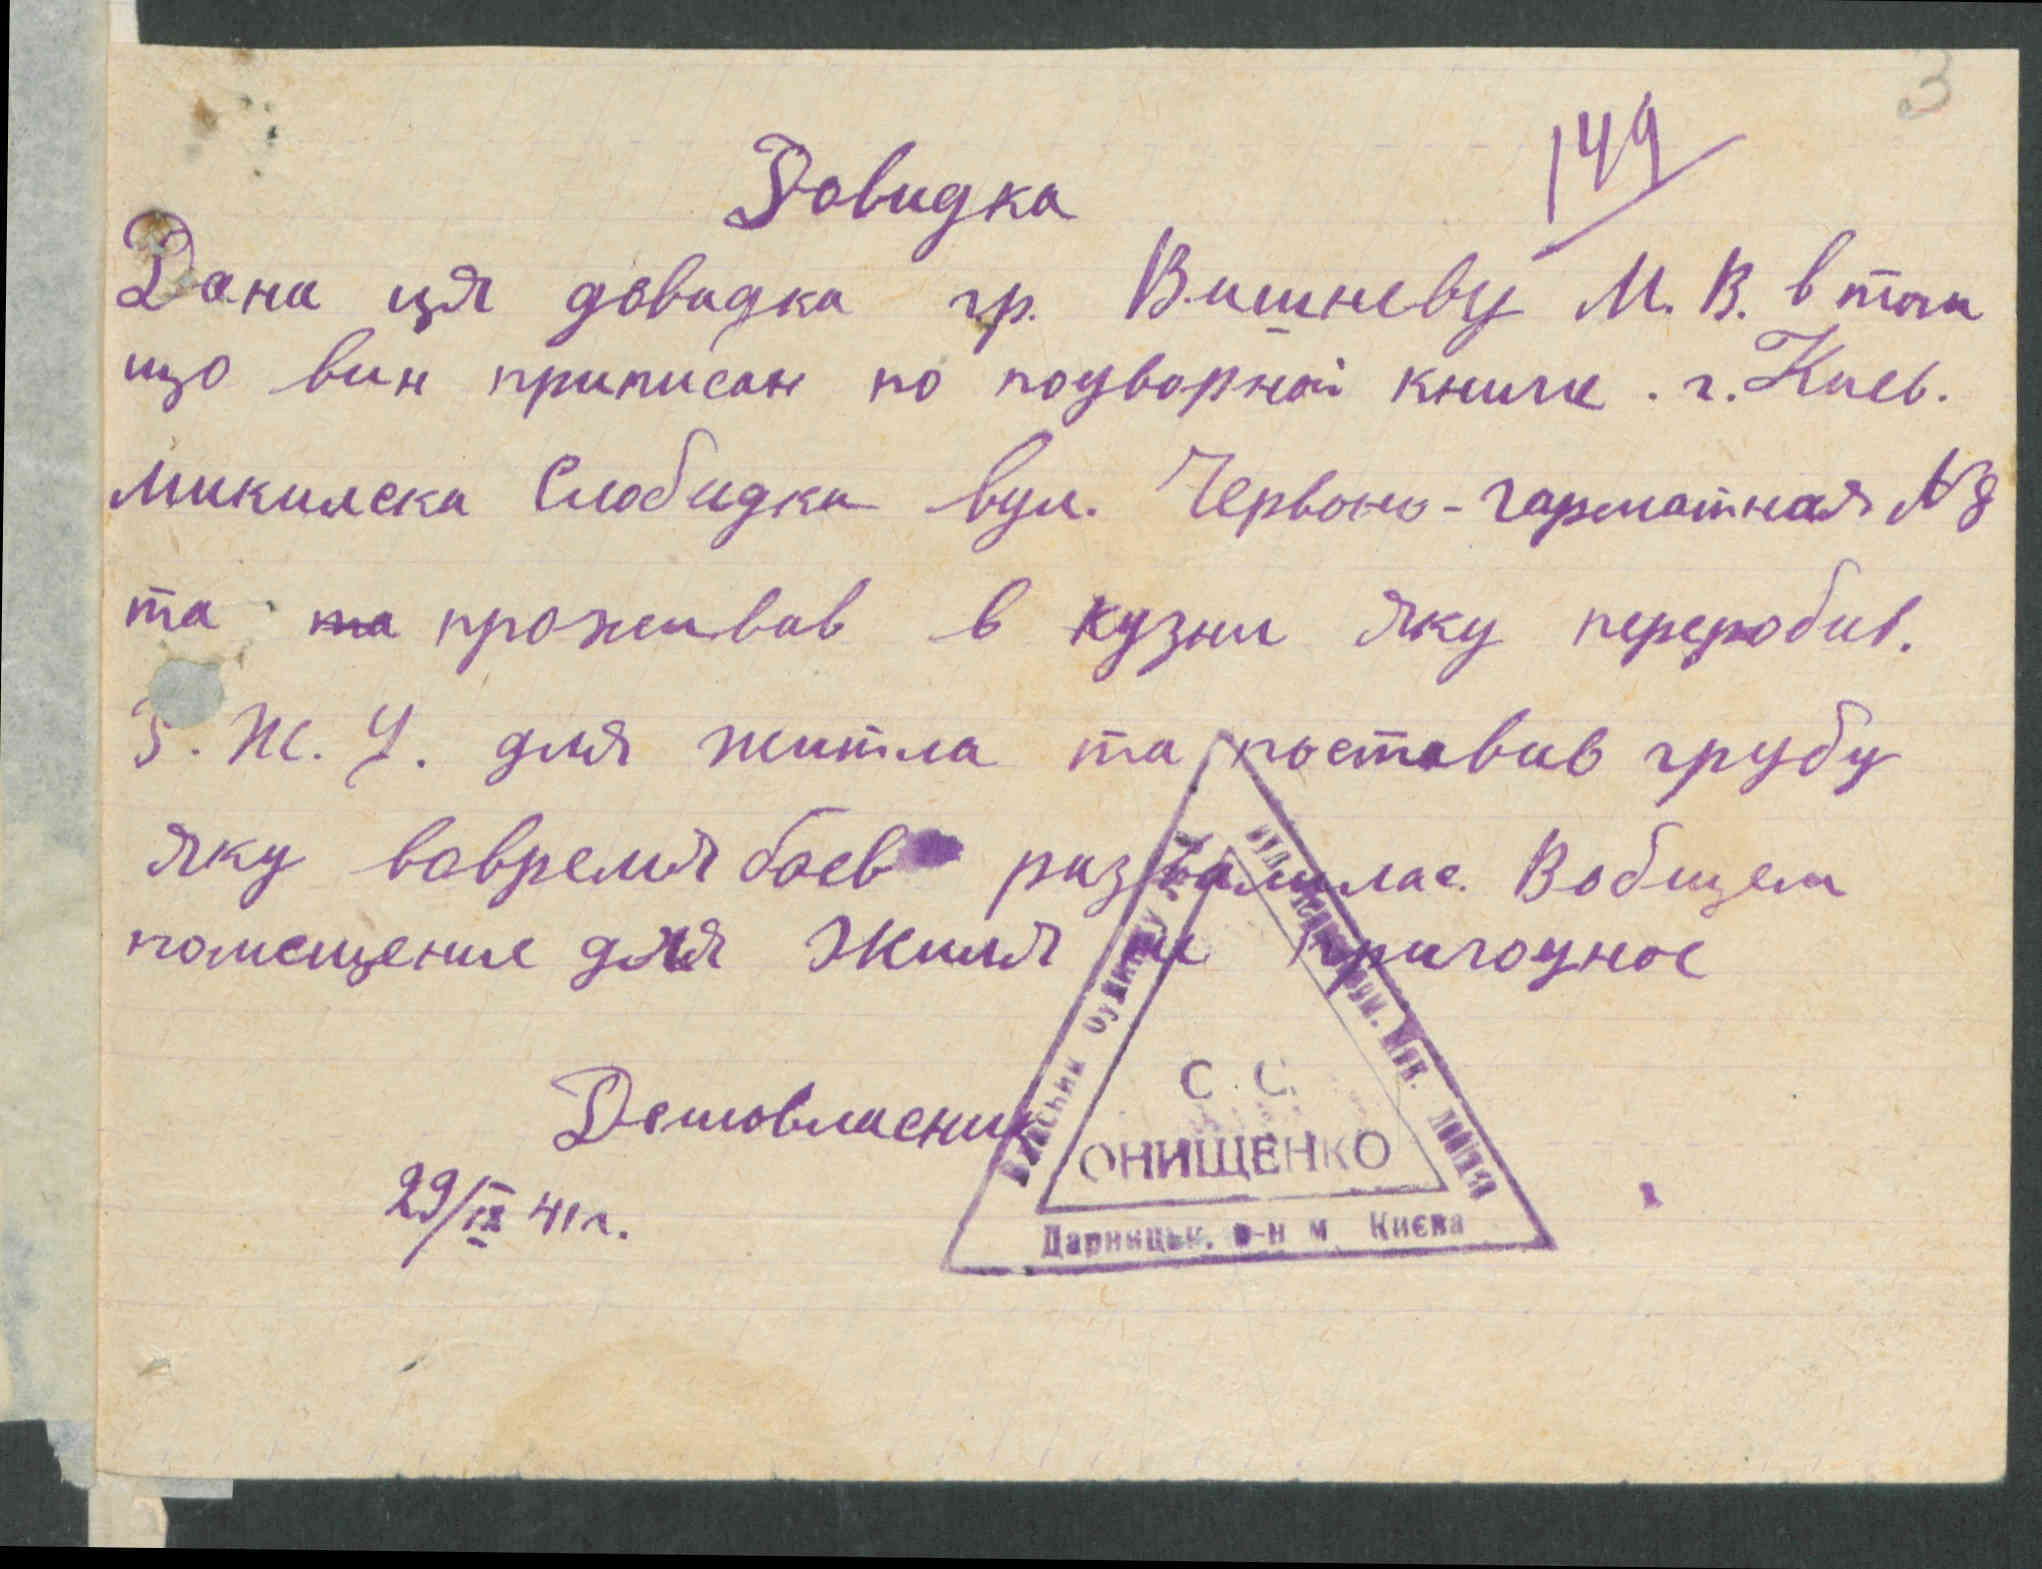 3
149
Довидка
Дана ця довидка гр. Вишневу М. В. в том
що вин приписан по подворной книги. г. Киев.
Микилска Слобидка вул. Червоно-гарматная №8
та та проживав в кузни яку переробив.
Ж. У. для житла та поставив грубу
яку вовремя боев развалилас. Вобщем
помещение для жиля не пригодное
Домовласник
29/IX 41 г.
Власник будинку
С. С.
ОНИЩЕНКО
Дарницьк. р-н м Києва